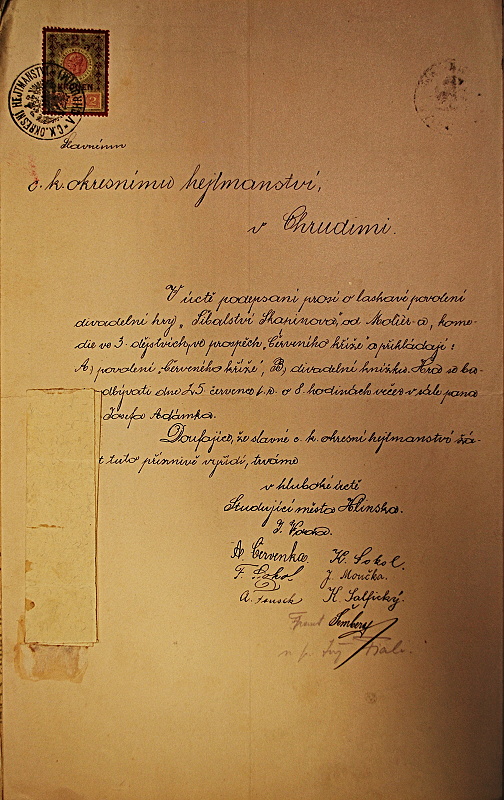 C.K. OKRESNÍ HEJTMANSTVÍ
2
Slavnému
c. k. okresnímu hejtmanství,
v Chrudimi.
V úctě podepsaní prosí o laskavé povolení
divadelní hry „Šibalství Skapinova", od Moliér-a, kome-
die ve 3. dějstvích, ve prospěch „Červeného kříže" a přikládají:
A) povolení „Červeného kříže", B) divadelní knížku. Kus se bu-
odbývati dne 25 července t. r. o 8. hodinách večer v sále pana
Josefa Adámka.
Doufajíce, že slavné c. k. okresní hejtmanství žá-
t tuto příznivě vyřídí, trváme
v hluboké úctě
Studující města Hlinska.
J. Vávra.
A Červenka. K. Sokol.
F. Sokol. J. Moučka.
A. K Salfický.
Frant.